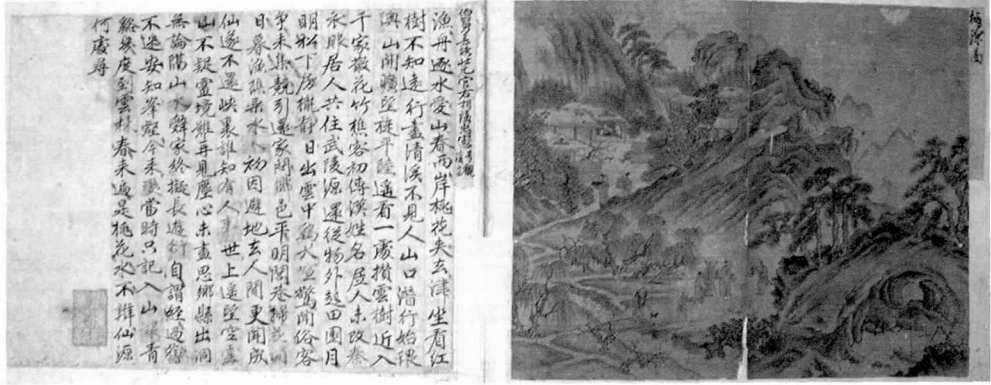 桃源圖
漁舟逐水愛山春兩岸桃花夾去津坐看紅
樹不知遠行盡清溪不見人山口潛行始隈
隩山開曠望旋平陸遙看一處攢雲樹近入
千家散花竹樵客初傳漢姓名居人未改秦
衣服居人共住武陵源還從物外起田園月
明松下房櫳靜日出雲中雞犬喧驚聞俗客
爭來集競引還家問都邑平明閭巷掃花開
日暮漁樵乘水入初因避地去人間更聞成
仙遂不還峽裏誰知有人事世上遙望空雲
山不疑靈境難再見塵心未盡思鄉縣出洞
無論隔山水辭家終擬長遊衍自謂經過舊
不迷安知峰壑今來變當時只記入山深青
谿幾度到雲林春來遍是桃花水不辨仙源
何處尋